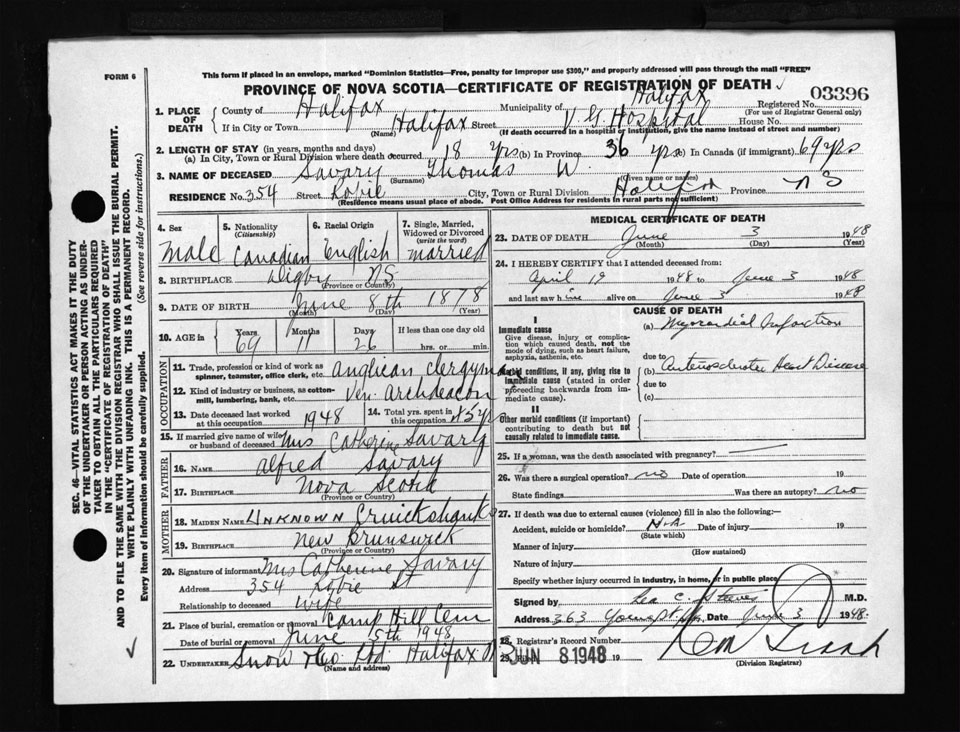 FORM 6
This form if placed in an envelope, marked "Dominion Statistics—Free, penalty for improper use $300," and properly addressed will pass through the mail "FREE"
PROVINCE OF NOVA SCOTIA—CERTIFICATE OF REGISTRATION OF DEATH
03396
1. PLACE OF DEATH
County of Halifax Municipality of Halifax Registered No.
(For use of Registrar General only)
If in City or Town Halifax Street V G Hospital House No.
(Name) (If death occurred in a hospital or institution, give the name instead of street and number)
2. LENGTH OF STAY (in years, months and days)
(a) In City, Town or Rural Division where death occurred 18 yrs (b) in Province 36 yrs (c) In Canada (if immigrant) 69 yrs
3. NAME OF DECEASED Savary Thomas W.
(Surname) (Given name or names)
RESIDENCE No. 354 Street Robie City, Town or Rural Division Halifax Province N S
(Residence means usual place of abode. Post Office Address for residents in rural parts not sufficient)
4. Sex 5. Nationality (Citizenship) 6. Racial Origin 7. Single, Married, Widowed or Divorced (write the word)
Male Canadian English married
8. BIRTHPLACE Digby NS
(Province or Country)
9. DATE OF BIRTH June 8th 1878
(Month) (Day) (Year)
10. AGE in Years Months Days If less than one day
69 11 26 hrs. or min.
OCCUPATION
11. Trade, profession or kind of work as spinner, teamster, office clerk, etc. Anglican Clergyman
12. Kind of industry or business, as cotton-mill, lumbering, bank, etc. Ven. Archdeacon
13. Date deceased last worked at this occupation 1948 14. Total yrs. spent in this occupation 45 yrs
15. If married give name of wife or husband of deceased Mrs Catherine Savary
FATHER
16. NAME Alfred Savary
17. BIRTHPLACE Nova Scotia
(Province or Country)
MOTHER
18. MAIDEN NAME Unknown Cruickshank
19. BIRTHPLACE New Brunswick
(Province or Country)
20. Signature of informant Mrs Catherine Savary
Address 354 Robie St
Relationship to deceased Wife
21. Place of burial, cremation or removal Camp Hill Cem
Date of burial or removal June 5th 1948
22. UNDERTAKER Snow & Co. Ltd. Halifax
(Name and address)
MEDICAL CERTIFICATE OF DEATH
23. DATE OF DEATH June 3 1948
(Month) (Day) (Year)
24. I HEREBY CERTIFY that I attended deceased from:
April 19 1948 to June 3 1948
and last saw him alive on June 3 1948
CAUSE OF DEATH
I
Immediate cause
Give disease, injury or complication which caused death, not the mode of dying, such as heart failure, asphyxia, asthenia, etc.
(a) Myocardial Infarction
due to
Morbid conditions, if any, giving rise to immediate cause (stated in order proceeding backwards from immediate cause).
(b) Arteriosclerotic Heart Disease
due to
(c)
II
Other morbid conditions (if important) contributing to death but not causally related to immediate cause.
25. If a woman, was the death associated with pregnancy?
26. Was there a surgical operation? no Date of operation 19
State findings Was there an autopsy? no
27. If death was due to external causes (violence) fill in also the following:
Accident, suicide or homicide? N.A. Date of injury 19
(State which)
Manner of injury
(How sustained)
Nature of injury
Specify whether injury occurred in industry, in home, or in public place
Signed by Lea C. Steeves M.D.
Address 363 Date June 3 1948
28. Registrar's Record Number
29. JUN 8 1948 19
(Division Registrar)
SEC. 46—VITAL STATISTICS ACT MAKES IT THE DUTY
OF THE UNDERTAKER OR PERSON ACTING AS UNDERTAKER TO OBTAIN ALL THE PARTICULARS REQUIRED
IN THE "CERTIFICATE OF REGISTRATION OF DEATH"
AND TO FILE THE SAME WITH THE DIVISION REGISTRAR WHO SHALL ISSUE THE BURIAL PERMIT.
WRITE PLAINLY WITH UNFADING INK. THIS IS A PERMANENT RECORD.
Every item of information should be carefully supplied. (See reverse side for instructions.)